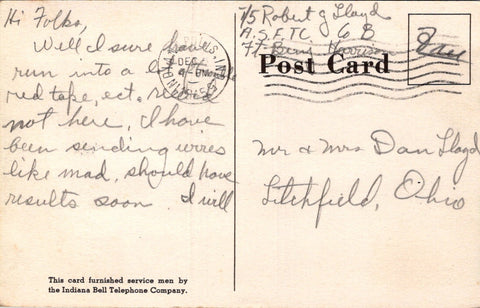 Hi Folks,
Well I sure have
run into a
red tape, ect.
not here, I have
been sending wires
like mad, should have
results soon. I will
This card furnished service men by
the Indiana Bell Telephone Company.
T/5 Robert J Lloyd
A.S.F.T.C. 6 B
Ft Benj Harrison
Free
Post Card
DEC
Mr & Mrs Dan Lloyd
Litchfield, Ohio